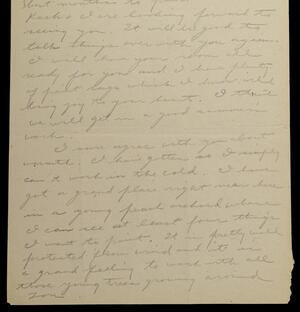 short months to
Rachs & I are looking forward to
seeing you. It will be good to
talk things over with you again.
I will have your room all
ready for you and I have plenty
of
joy to your heart. I think
we will get in a good
work.
I sure agree with you about
warmth. I have gotten so I simply
can't work in the cold. I have
got a grand place right near here
in a young peach orchard where
I can see at least four things
I want to paint. It is pretty well
protected from wind and it is
a grand feeling to work with all
those young trees growing around
you.